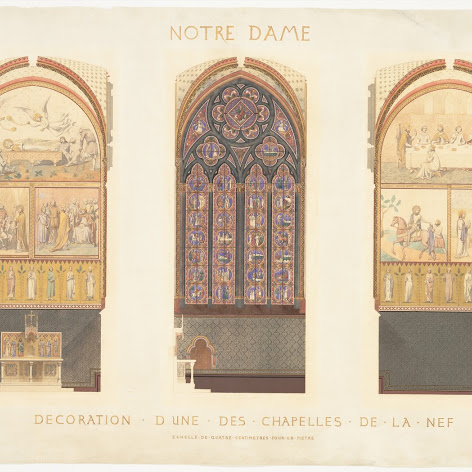 NOTRE DAME
DECORATION · D UNE · DES · CHAPELLES · DE · LA · NEF
ECHELLE · DE · QUATRE · CENTIMETRES · POUR · UN · METRE